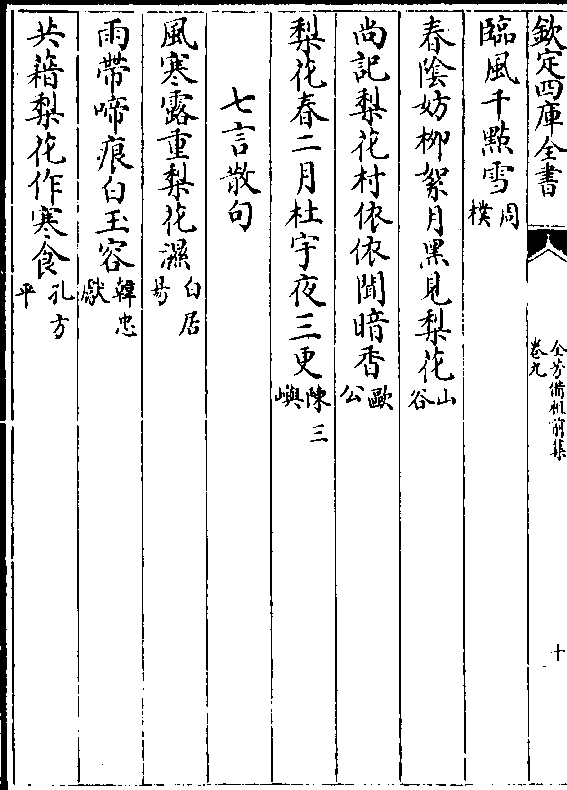 欽定四庫全書
全芳備祖前集
卷九
十
臨風千點雪周樸
春陰妨柳絮月黑見梨花山谷
尚記梨花村依依聞暗香歐公
梨花春二月杜宇夜三更陳三嶼
七言散句
風寒露重梨花濕白居易
雨帶啼痕白玉容韓忠獻
共藉梨花作寒食孔方平